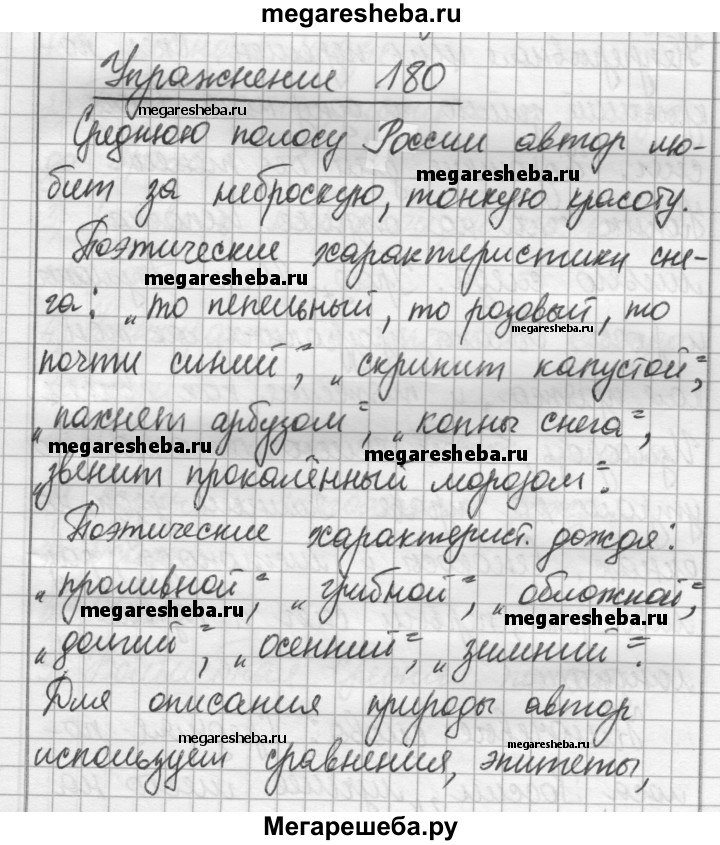 megaresheba.ru
Упражнение 180
megaresheba.ru
Среднюю полосу России автор лю-
megaresheba.ru
бит за неброскую, тонкую красоту.
Поэтические характеристики сне-
megaresheba.ru
га: „то пепельный, то розовый, то
megaresheba.ru
почти синий“, „скрипит капустой“,
„пахнет арбузом“, „копны снега“,
megaresheba.ru
megaresheba.ru
„звенит прокалённый морозом“.
Поэтические характерист. дождя:
„проливной“, „грибной“, „обложной“,
megaresheba.ru
megaresheba.ru
„долгий“, „осенний“, „зимний“.
Для описания природы автор
megaresheba.ru
megaresheba.ru
использует сравнения, эпитеты,
Мегарешеба.ру